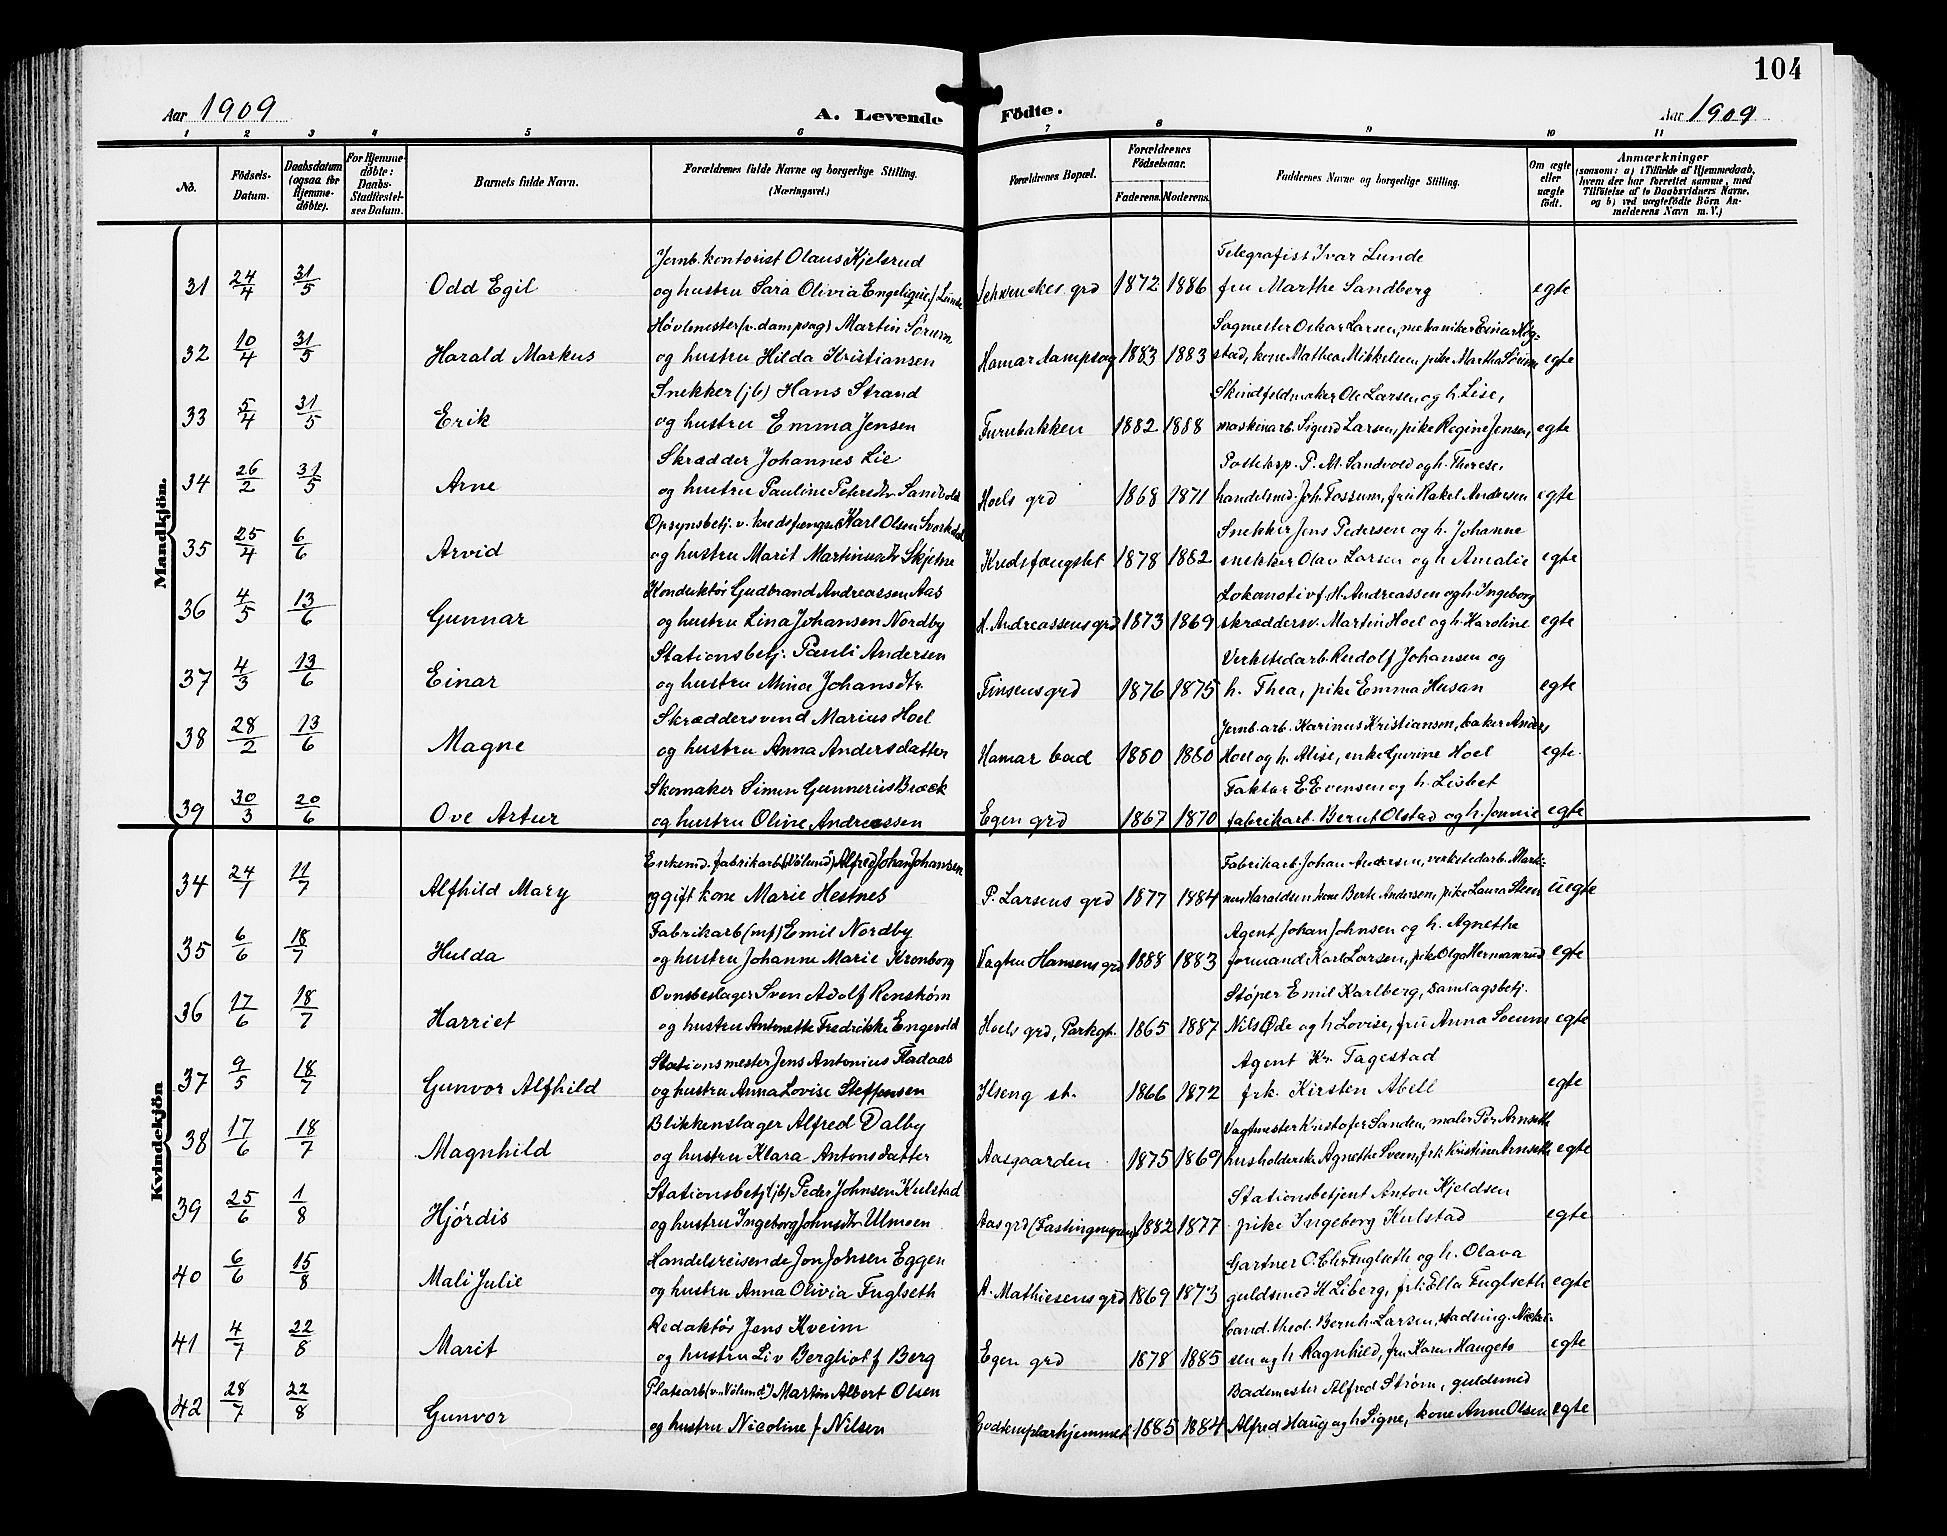 104
Aar 1909
A. Levende
Födte.
Aar 1909
1 2 3 4 5 6 7 8 9 10 11
No.
Födsels-Datum.
Daabsdatum (ogsaa for Hjemme-döbte).
For Hjemme-döbte: Daabs-Stadfæstel-ses Datum.
Barnets fulde Navn.
Forældrenes fulde Navne og borgerlige Stilling. (Næringsvei.)
Forældrenes Bopæl.
Forældrenes Födselsaar.
Faderens. Moderens.
Faddernes Navne og borgerlige Stilling.
Om ægte eller uægte födt.
Anmærkninger
(saasom: a) i Tilfælde af Hjemmedaab, hvem der har forrettet samme, med Tilföielse af to Daabsvidners Navne, og b) ved uægtefödte Börn An-melderens Navn m. V.)
Mandkjön.
Jernb. kontorist Olaus Kjelsrud Telegrafist Ivar Lunde
31 24/4 31/5 Odd Egil og hustru Sara Olivia Engelique f. Lunde Schwenckes grd 1872 1886 fru Marthe Sandberg egte
Høvlmester (v. dampsag) Martin Sørum Sagmester Oskar Larsen, mekaniker Einar Høg-
32 10/4 31/5 Harald Markus og hustru Hilda Kristiansen Hamar dampsag 1883 1883 stad, kone Mathea Mikkelsen, pike Martha Sørum egte
Snekker (jb) Hans Strand Skindfeldmaker Ole Larsen og h. Lise,
33 5/4 31/5 Erik og hustru Emma Jensen Furubakken 1882 1888 maskinarb. Sigurd Larsen, pike Regine Jensen, egte
Skrædder Johannes Lie Posteksp. P. M. Sandvold og h. Therese,
34 26/2 31/5 Arne og hustru Pauline Petersdtr Sandvold Hoels grd 1868 1871 handelsmd. Joh. Fossum, frü Rakel Andresen egte
Opsynsbetj. v. kredsfængsel Karl Olsen Snekker Jens Pedersen og h. Johanne
35 25/4 6/6 Arvid og hustru Marit Martinusdtr Skjetne Kredsfængslet 1878 1882 snekker Olav Larsen og h Amalie egte
Konduktør Gudbrand Andreassen Aas Lokomotivf. H. Andreassen og h. Ingeborg
36 4/5 13/6 Gunnar og hustru Lina Johansen Nordby H. Andreassens grd 1873 1869 skræddersv. Martin Hoel og h. Karoline egte
Stationsbetj. Pauli Andersen Verkstedarb. Rudolf Johansen og
37 4/3 13/6 Einar og hustru Mina Johansdtr. Finsens grd 1876 1875 h. Thea, pike Emma Husan egte
Skræddersvend Marius Hoel Jernb. arb. Karinus Kristiansen, baker Anders
38 28/2 13/6 Magne og hustru Anna Andersdatter Hamar bad 1880 1880 Hoel og h. Alise, enke Gurine Hoel egte.
Skomaker Simen Gunnerius Bræck Faktor E Evensen og h. Lisbet
39 30/3 20/6 Ove Artur og hustru Oline Andreassen Egen grd 1867 1870 fabrikarb. Bernt Olstad og h. Jonnie egte
Kvindekjön
Enkemd. fabrikarb. („Vølund") Alfred Johan Johansen Fabrikarb. Johan Andersen, verkstedarb. Mark-
34 24/1 11/7 Alfhild Mary og gift kone Marie Hestnes P. Larsens grd 1877 1884 nus Haraldsen kone Berte Andersen, pike Laura Steen uegte
Fabrikarb (mf) Emil Nordby Agent Johan Johnsen og h. Agnethe
35 6/6 18/7 Hulda og hustru Johanne Marie Kronborg Vagtm Hansens grd 1888 1883 formand Karl Larsen, pik. Olga Hermanrud egte
Ovnsbeslager Sven Adolf Renstrøm Støper Emil Karlberg, samlagsbetj.
36 17/6 18/7 Harriet og hustru Antonette Fredrikke Engevold Hoels grd, Parkgt. 1865 1887 Nils Øde og h Lovise, frü Anna Soeum egte
Stationsmester Jens Antonius Fladaas Agent Kr. Fagestad
37 9/5 18/7 Gunvor Alfhild og hustru Anna Lovise Steffensen Ilseng st. 1866 1872 frk. Kirsten Abell egte
Blikkenslager Alfred Dalby Vagtmester Kristofer Sanden, maler Per Arnseth
38 17/6 18/7 Magnhild og hustru Klara Antonsdatter Aasgaarden 1875 1869 husholderske Agnethe Sveen, frk Kristine Arnseth egte
Stationsbetj (jb) Peder Johnsen Kulstad Stationsbetjent Anton Kjeldsen
39 25/6 1/8 Hjørdis og hustru Ingeborg Johnsdtr Ulmoen Aas grd 1882 1877 pike Ingeborg Kulstad egte
Handelsreisende Jon Johsen Eggen Gartner O. Chr. Fuglseth og h. Olava
40 6/6 15/8 Mali Julie og hustru Anna Olivia Fuglseth A. Mathiesens grd 1869 1873 guldsmed H Liberg, frk. Ella Fuglseth egte
Redaktør Jens Kveim Cand. theol. Bernh. Larsen, stadsing. Nickel-
41 4/7 22/8 Marit og hustru Liv Bergliotf Berg Egen grd 1878 1885 sen og h Ragnhild, fru Karen Haugeto egte
Platearb (v. „Vølund") Martin Albert Olsen Bademester Alfred Strøm, guldsmed
42 28/7 22/8 Gunvor og hustru Nicoline f. Nilsen Godtemplarhjemmet 1885 1884 Alfred Haug og h Signe, kone Anne Olsen egte